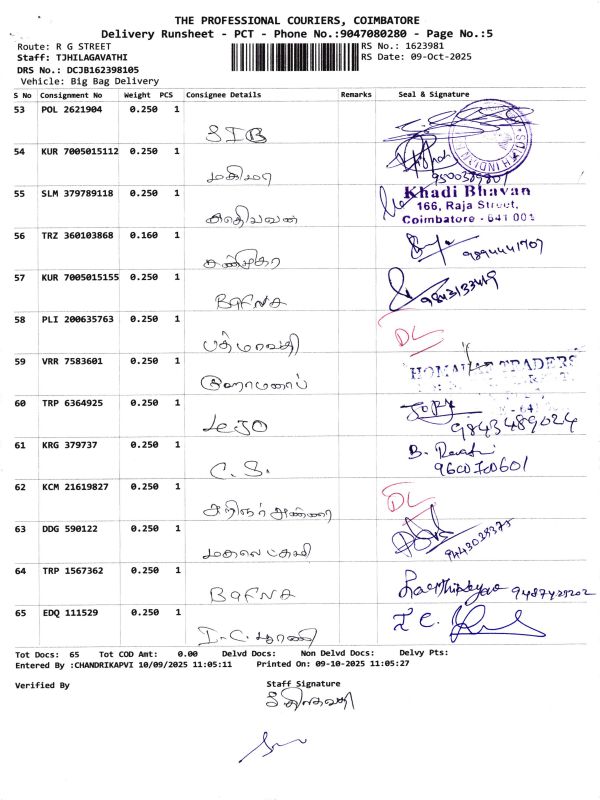 THE PROFESSIONAL COURIERS, COIMBATORE
Delivery Runsheet - PCT - Phone No.:9047080280 - Page No.:5
Route: R G STREET RS No.: 1623981
Staff: TJHILAGAVATHI RS Date: 09-Oct-2025
DRS No.: DCJB162398105
Vehicle: Big Bag Delivery
S No Consignment No Weight PCS Consignee Details Remarks Seal & Signature
53 POL 2621904 0.250 1
SIB
SOUTH INDIAN
54 KUR 7005015112 0.250 1
மகிமா
9500389801
55 SLM 379789118 0.250 1
Khadi Bhavan
166, Raja Street,
Coimbatore - 641 001
கதிபவன்
56 TRZ 360103868 0.160 1
9894441707
57 KUR 7005015155 0.250 1
BaFNa
9843133469
58 PLI 200635763 0.250 1
DL
பத்மாவதி
59 VRR 7583601 0.250 1
TRADERS
60 TRP 6364925 0.250 1
LeJO
9843489024
61 KRG 379737 0.250 1
B. Revathi
C. S.
62 KCM 21619827 0.250 1
DL
அறிஞர் அண்ணா
63 DDG 590122 0.250 1
64 TRP 1567362 0.250 1
BaFNa
65 EDQ 111529 0.250 1
Tot Docs: 65 Tot COD Amt: 0.00 Delvd Docs: Non Delvd Docs: Delvy Pts:
Entered By :CHANDRIKAPVI 10/09/2025 11:05:11 Printed On: 09-10-2025 11:05:27
Verified By Staff Signature